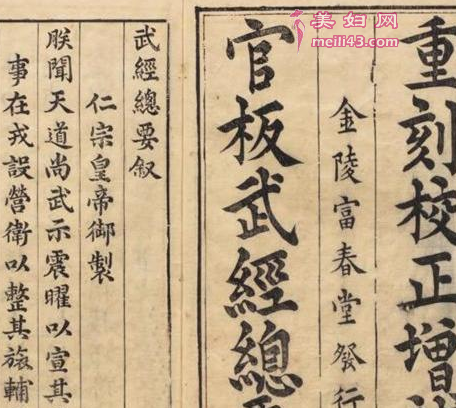 美妇网
meili43.com
重刻校正增
金陵富春堂發行
官板武經總
武經總要叙
仁宗皇帝御製
朕聞天道尚武示震曜以宣其
事在戎設營衛以整其旅輔